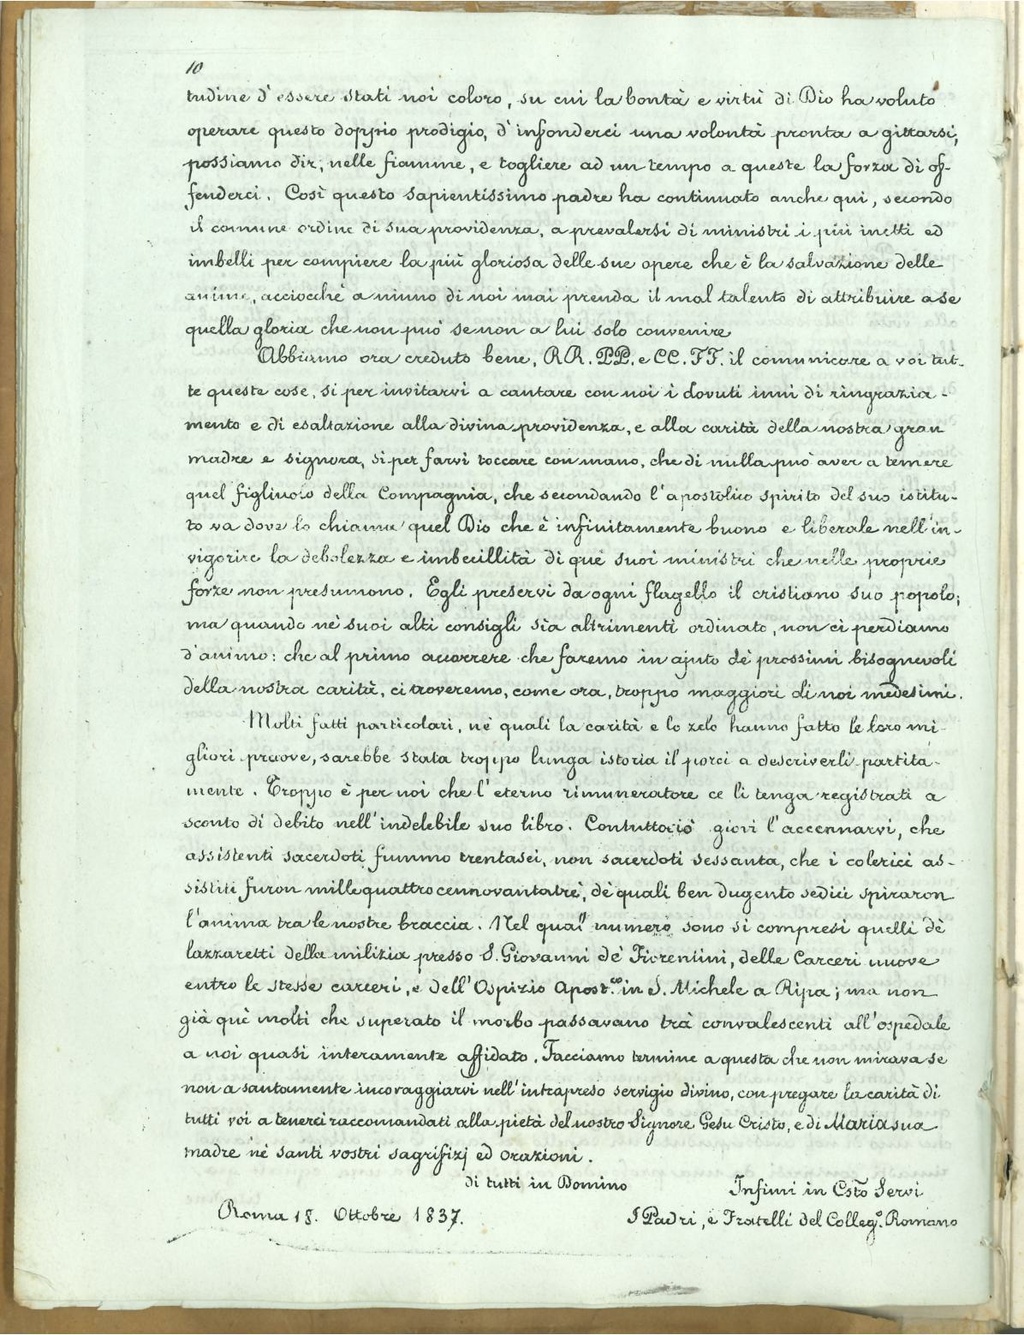 10
tudine d'essere stati noi coloro, su cui la bontà e virtù di Dio ha voluto
operare questo doppio prodigio, d'infonderci una volontà pronta a gittarsi,
possiamo dir, nelle fiamme, e togliere ad un tempo a queste la forza di of-
fenderci. Così questo sapientissimo padre ha continuato anche qui, secondo
il comune ordine di sua providenza, a prevalersi di ministri i più inetti ed
imbelli per compiere la più gloriosa delle sue opere che è la salvazione delle
anime, acciocchè a niuno di noi mai prenda il mal talento di attribuire a se
quella gloria che non può se non a lui solo convenire
Abbiamo ora creduto bene, RR. PP. e CC. FF. il comunicare a voi tut-
te queste cose, si per invitarvi a cantare con noi i dovuti inni di ringrazia-
mento e di esaltazione alla divina providenza, e alla carità della nostra gran
madre e signora, si per farvi toccare con mano, che di nulla può aver a temere
quel figliuolo della Compagnia, che secondando l'apostolico spirito del suo istitu-
to va dove lo chiama quel Dio che è infinitamente buono e liberale nell'in-
vigorire la debolezza e imbecillità di què suoi ministri che nelle proprie
forze non presumono. Egli preservi da ogni flagello il cristiano suo popolo;
ma quando nè suoi alti consigli sia altrimenti ordinato, non ci perdiamo
d'animo: che al primo accorrere che faremo in ajuto dè prossimi bisognevoli
della nostra carità, ci troveremo, come ora, troppo maggiori di noi medesimi.
Molti fatti particolari, nè quali la carità e lo zelo hanno fatto le loro mi-
gliori pruove, sarebbe stata troppo lunga istoria il porci a descriverli partita-
mente. Troppo è per noi che l'eterno rimuneratore ce li tenga registrati a
sconto di debito nell'indelebile suo libro. Contuttociò giovi l'accennarvi, che
assistenti sacerdoti fummo trentasei, non sacerdoti sessanta, che i colerici as-
sistiti furon millequattrocennovantatrè, dè quali ben dugento sedici spiraron
l'anima tra le nostre braccia. Nel qual numero sono si compresi quelli dè
lazzaretti della milizia presso S. Giovanni dè Fiorentini, delle Carceri nuove
entro le stesse carceri, e dell'Ospizio Apost.co in S. Michele a Ripa; ma non
già què molti che superato il morbo passavano trà convalescenti all'ospedale
a noi quasi interamente affidato. Facciamo termine a questa che non mirava se
non a santamente incoraggiarvi nell'intrapreso servigio divino, con pregare la carità di
tutti voi a tenerci raccomandati alla pietà del nostro Signore Gesu Cristo, e di Maria sua
madre nè santi vostri sagrifizj ed orazioni.
di tutti in Domino
Infimi in Csto Servi
Roma 18. Ottobre 1837.
I Padri, e Fratelli del Colleg.o Romano